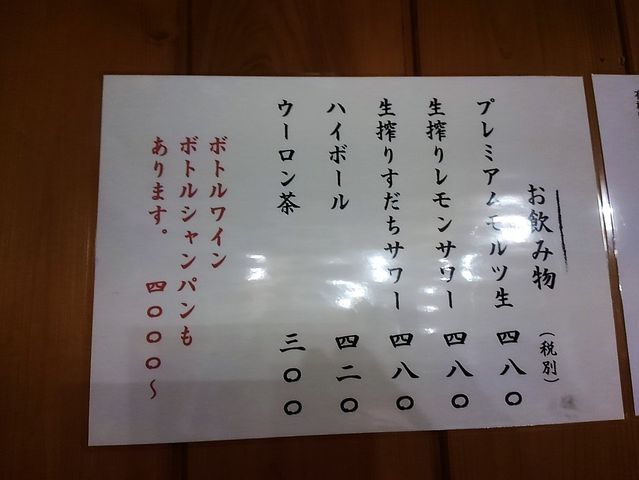 お飲み物 (税別)
プレミアムモルツ生 四八〇
生搾りレモンサワー 四八〇
生搾りすだちサワー 四八〇
ハイボール 四二〇
ウーロン茶 三〇〇
ボトルワイン
ボトルシャンパンも
あります。 四〇〇〇~